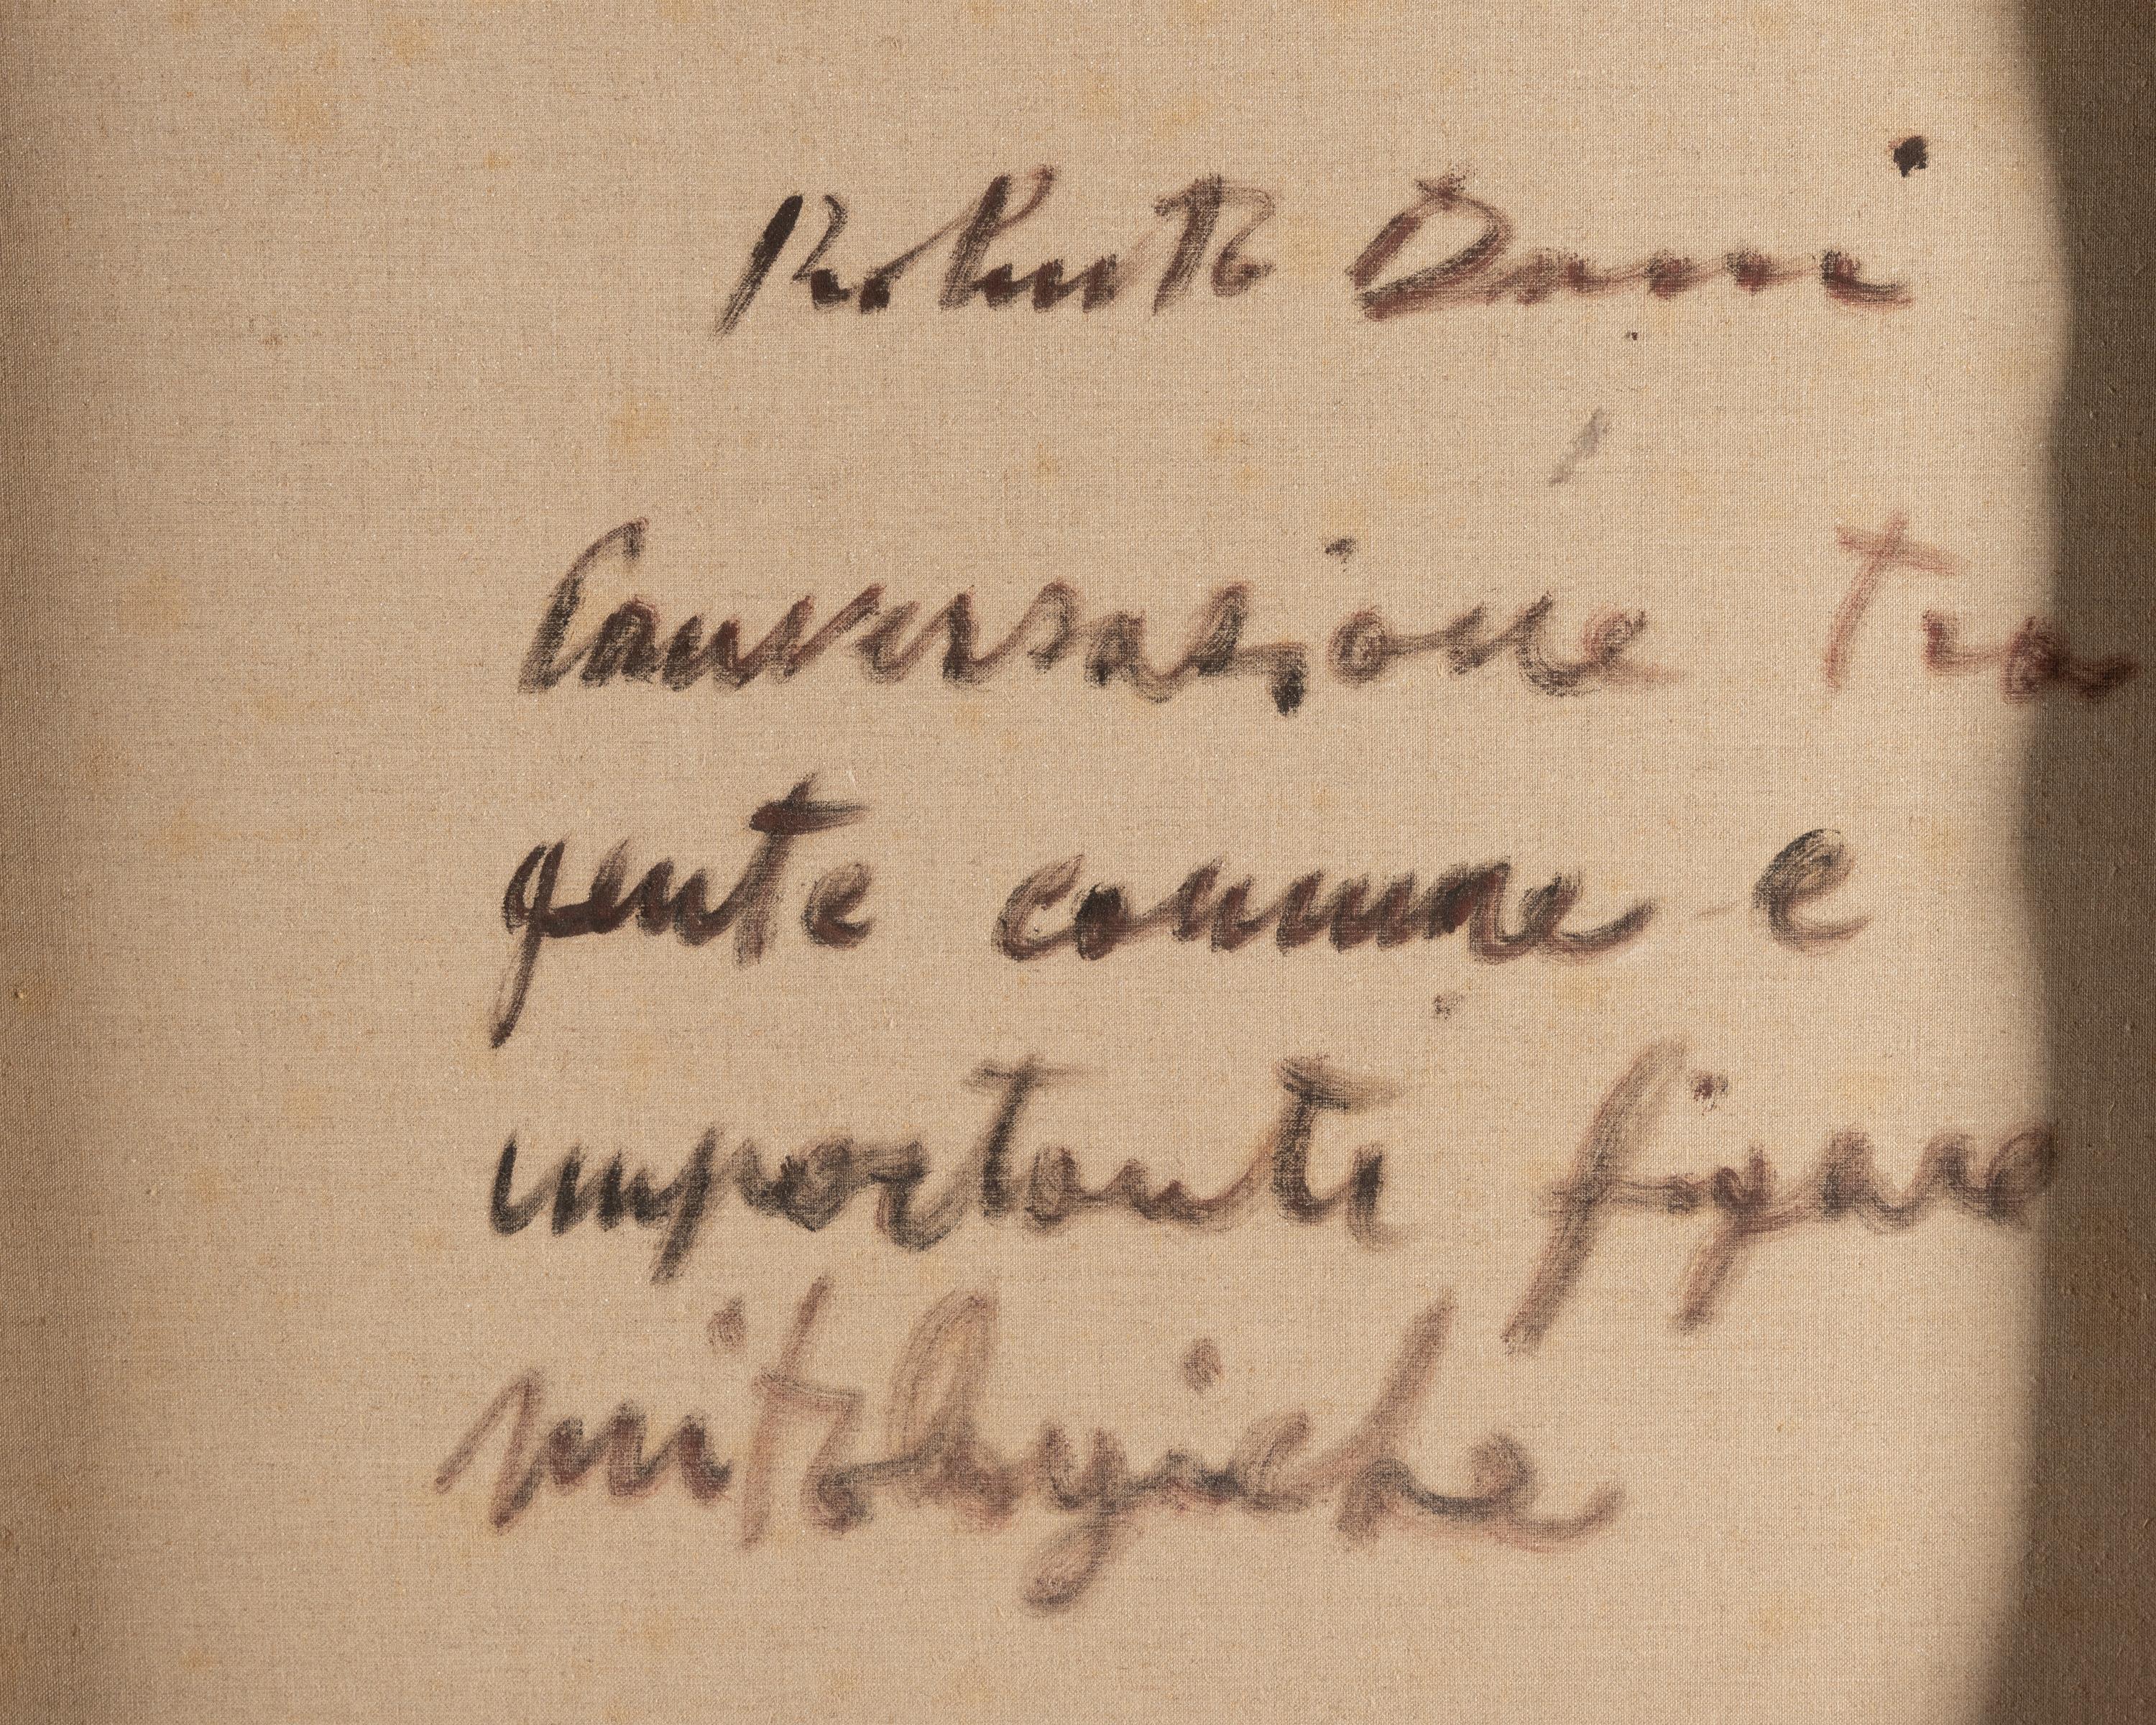 Roberto Dami
Conversazione tra
gente comune e
importanti figure
mitologiche